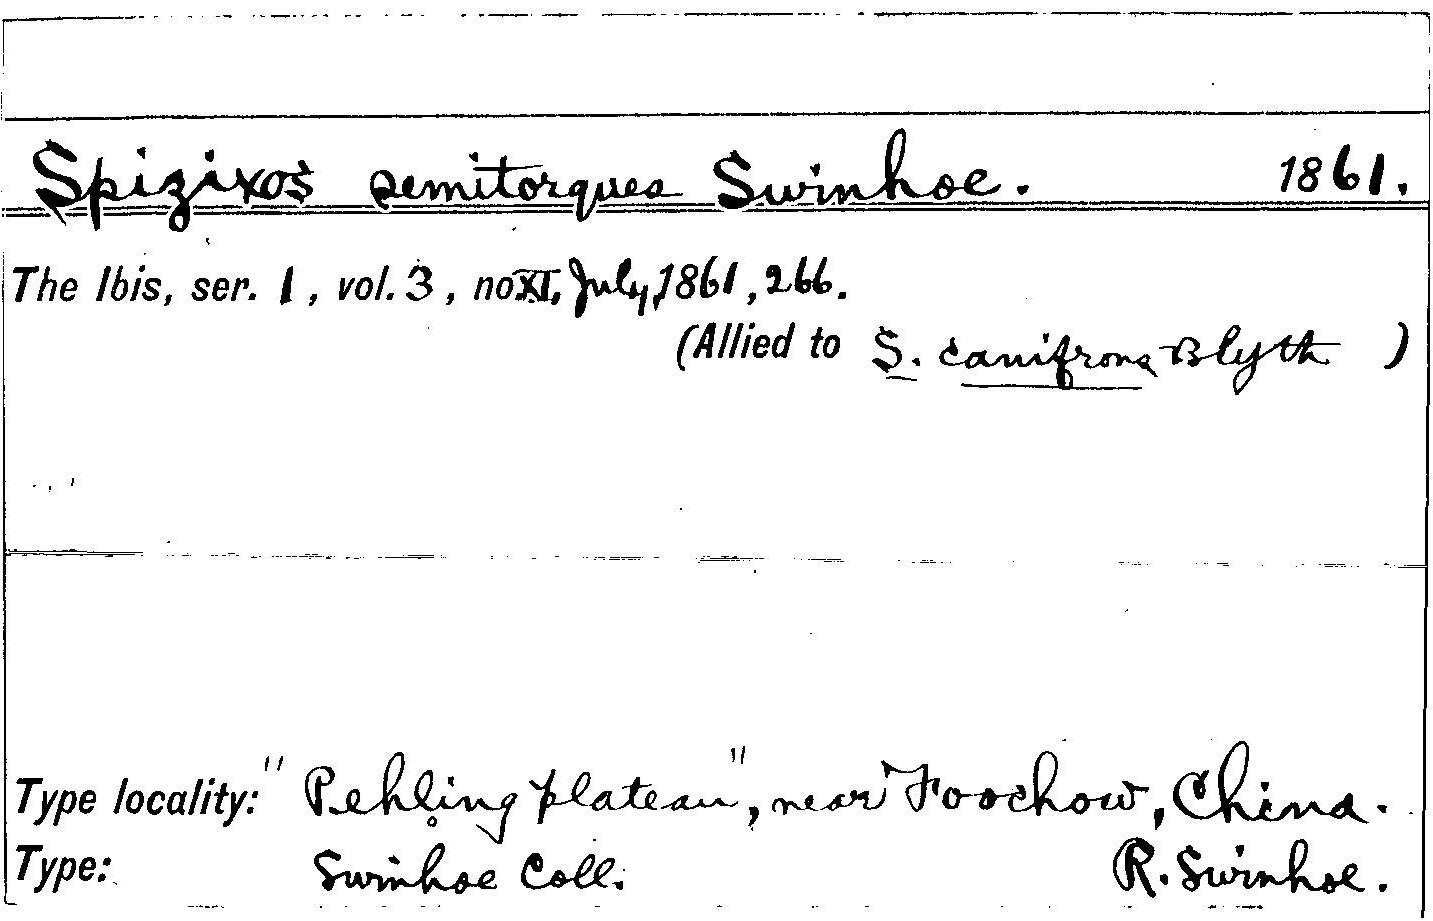 Spizixos semitorques Swinhoe. 1861.
The Ibis, ser. 1, vol. 3, no XI, July, 1861, 266.
(Allied to S. canifrons Blyth )
Type locality: "Pehling plateau", near Foochow, China.
Type: Swinhoe Coll. R. Swinhoe.